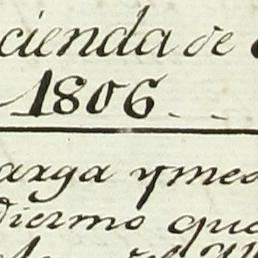 cienda de
1806
arga y med
diezmo que